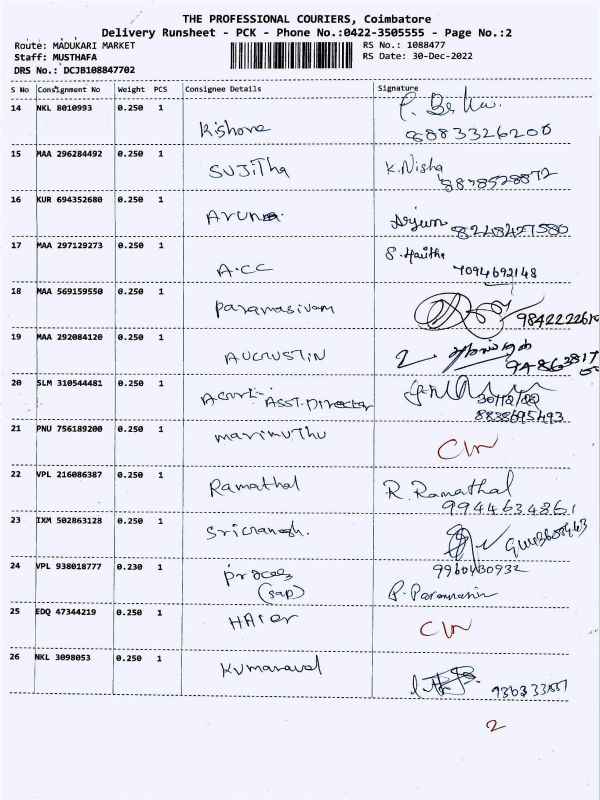 THE PROFESSIONAL COURIERS, Coimbatore
Delivery Runsheet - PCK - Phone No.:0422-3505555 - Page No.:2
Route: MADUKARI MARKET
RS No.: 1088477
Staff: MUSTHAFA
RS Date: 30-Dec-2022
DRS No.: DCJB108847702
S No Consignment No Weight PCS Consignee Details Signature
14 NKL 8010993 0.250 1
Kishore
8883326200
15 MAA 296284492 0.250 1
SUJITha K.Nisha
16 KUR 694352680 0.250 1
Aruna Arjun 8248427580
17 MAA 297129273 0.250 1
A.CC
7094692148
18 MAA 569159550 0.250 1
Paramasivam
19 MAA 292084120 0.250 1
AUCRUSTIN
20 SLM 310544481 0.250 1
ASST.Director 30/12/22
8838695493
21 PNU 756189200 0.250 1
marimuthu
22 VPL 216086387 0.250 1
Ramathal R. Ramathal
9944634861
23 IXM 502863128 0.250 1
24 VPL 938018777 0.230 1
(sap)
25 EDQ 47344219 0.250 1
HAier
26 NKL 3098053 0.250 1
Kumaraval
2